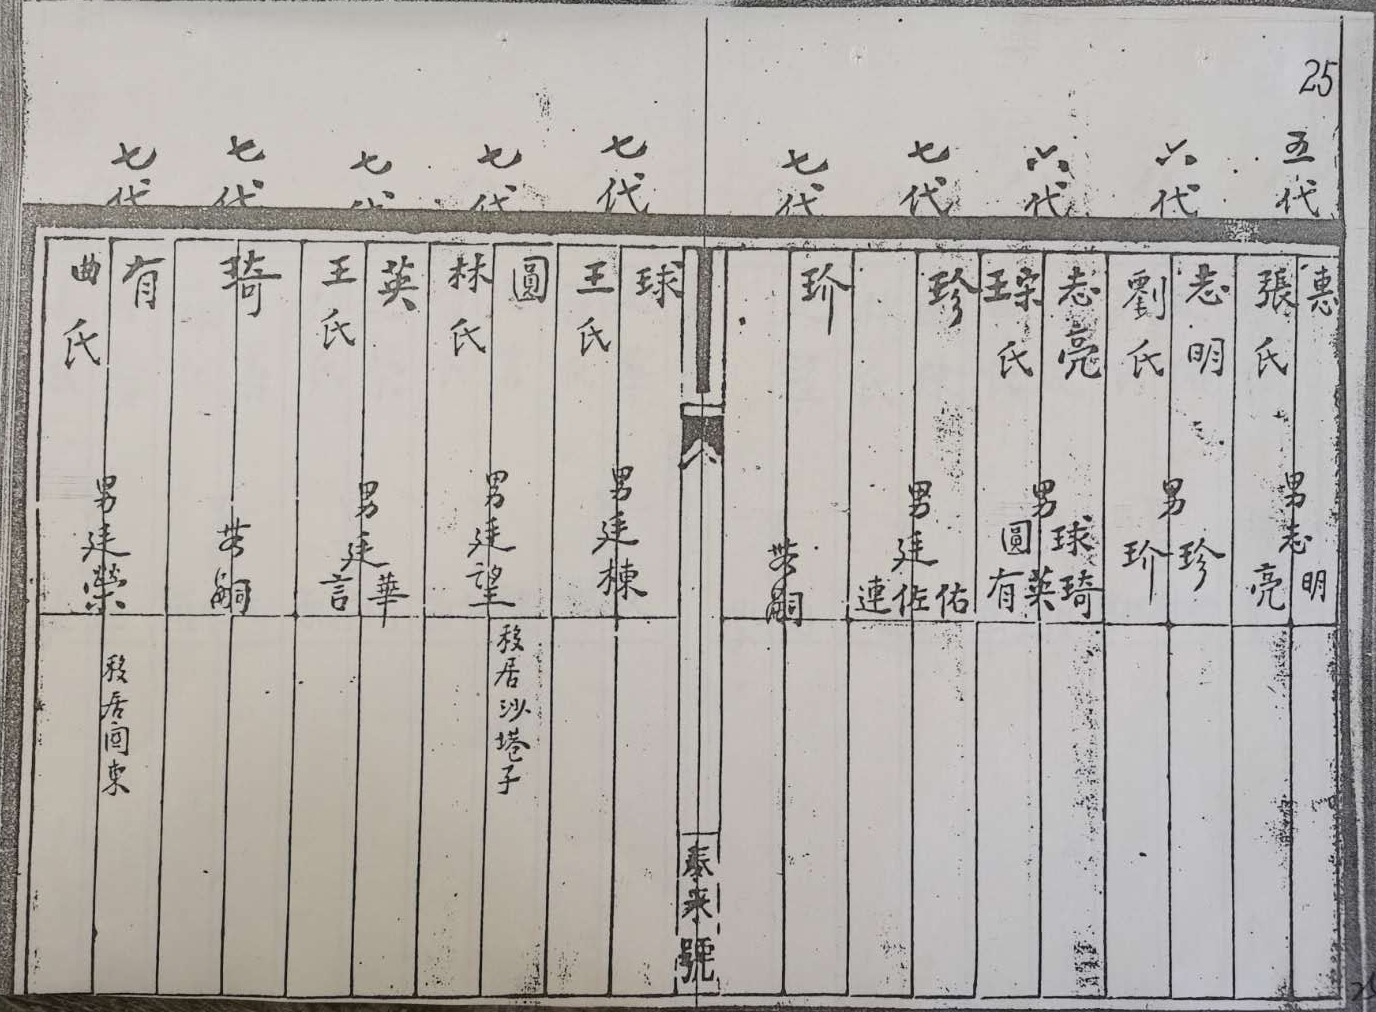 25
五代
惠
張氏
男志明
亮
六代
志明
劉氏
男珍
玠
六代
志亮
王宗氏
男球琦
圓英
有
七代
珍
男廷佑
佐
連
七代
玠
無嗣
泰來號
七代
球
王氏
男廷棟
七代
圓
林氏
男廷望
移居沙塂子
七代
英
王氏
男廷華
言
七代
琦
無嗣
七代
有
曲氏
男廷榮
移居関東